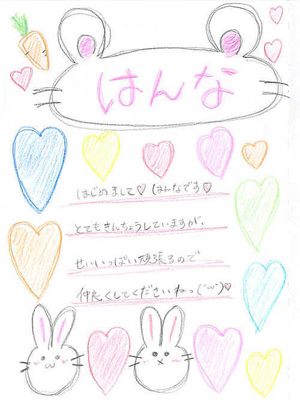 はんな
はじめまして♡ はんなです♡
とてもきんちょうしていますが、
せいいっぱい頑張るので
仲良くしてくださいねっ(´ω`)♡